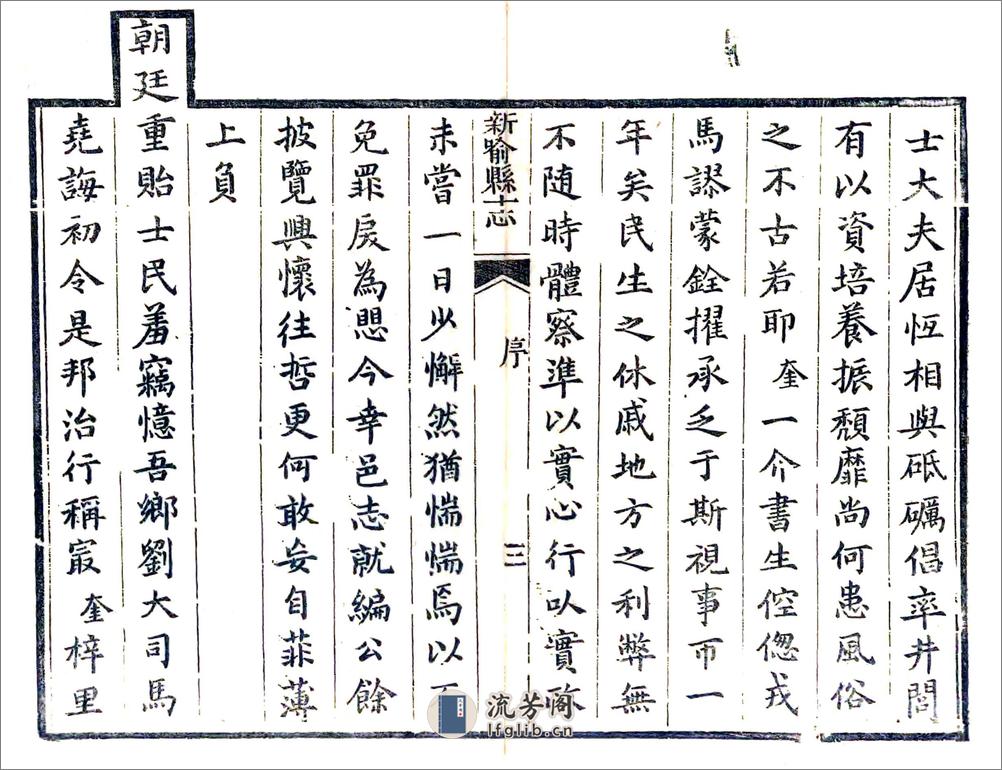 士大夫居恆相與砥礪倡率井閭
有以資培養振頹靡尚何患風俗
之不古若耶奎一介書生倥偬戎
馬謬蒙銓擢承乏于斯視事帀一
年矣民生之休戚地方之利弊無
不随時體察準以實心行以實
新喻縣志
序
三
未嘗一日少懈然猶惴惴焉以
免罪戾為愳今幸邑志就編公餘
披覽興懷往哲更何敢妄自菲薄
上負
朝廷重貽士民羞竊憶吾鄉劉大司馬
堯誨初令是邦治行稱冣奎梓里
流芳阁
lfglib.cn